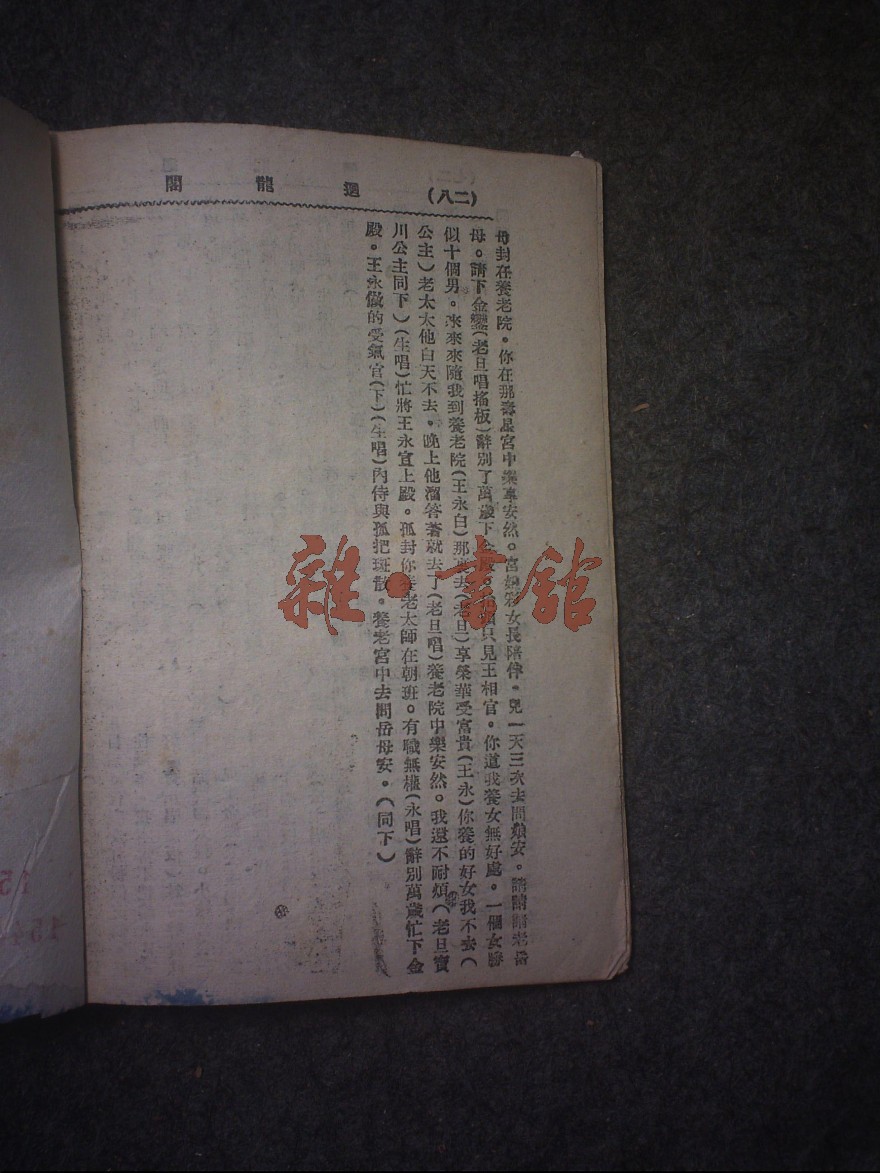 (二八)
迴龍閣
母封在養老院。你在那壽星宮中樂享安然。宮娥彩女長陪伴。兒一天三次去問娘安。請請請老岳
母。請下金鑾(老旦唱搖板)辭別了萬歲下金 只見王相官。你道我養女無好處。一個女勝
似十個男。來來來隨我到養老院(王永白)那裏去(老旦)享榮華受富貴(王永)你養的好女我不去(
公主)老太太他白天不去。晚上他溜答著就去了(老旦唱)養老院中樂安然。我還不耐煩(老旦寶
川公主同下)(生唱)忙將王永宣上殿。孤封你養老太師在朝班。有職無權(永唱)辭別萬歲忙下金
殿。王永做的受氣官(下)(生唱)內侍與孤把班散。養老宮中去問岳母安。(同下)
雜·書館
15
154